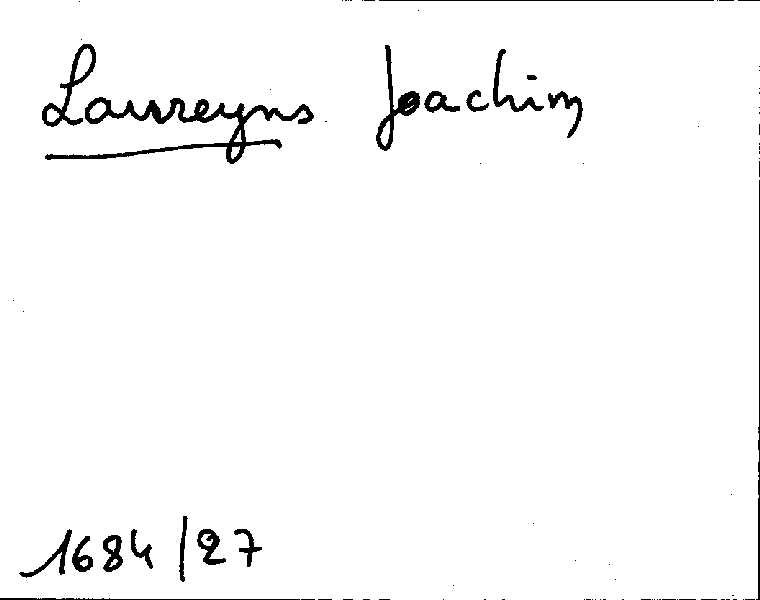 Laureyns Joachim
1684/27